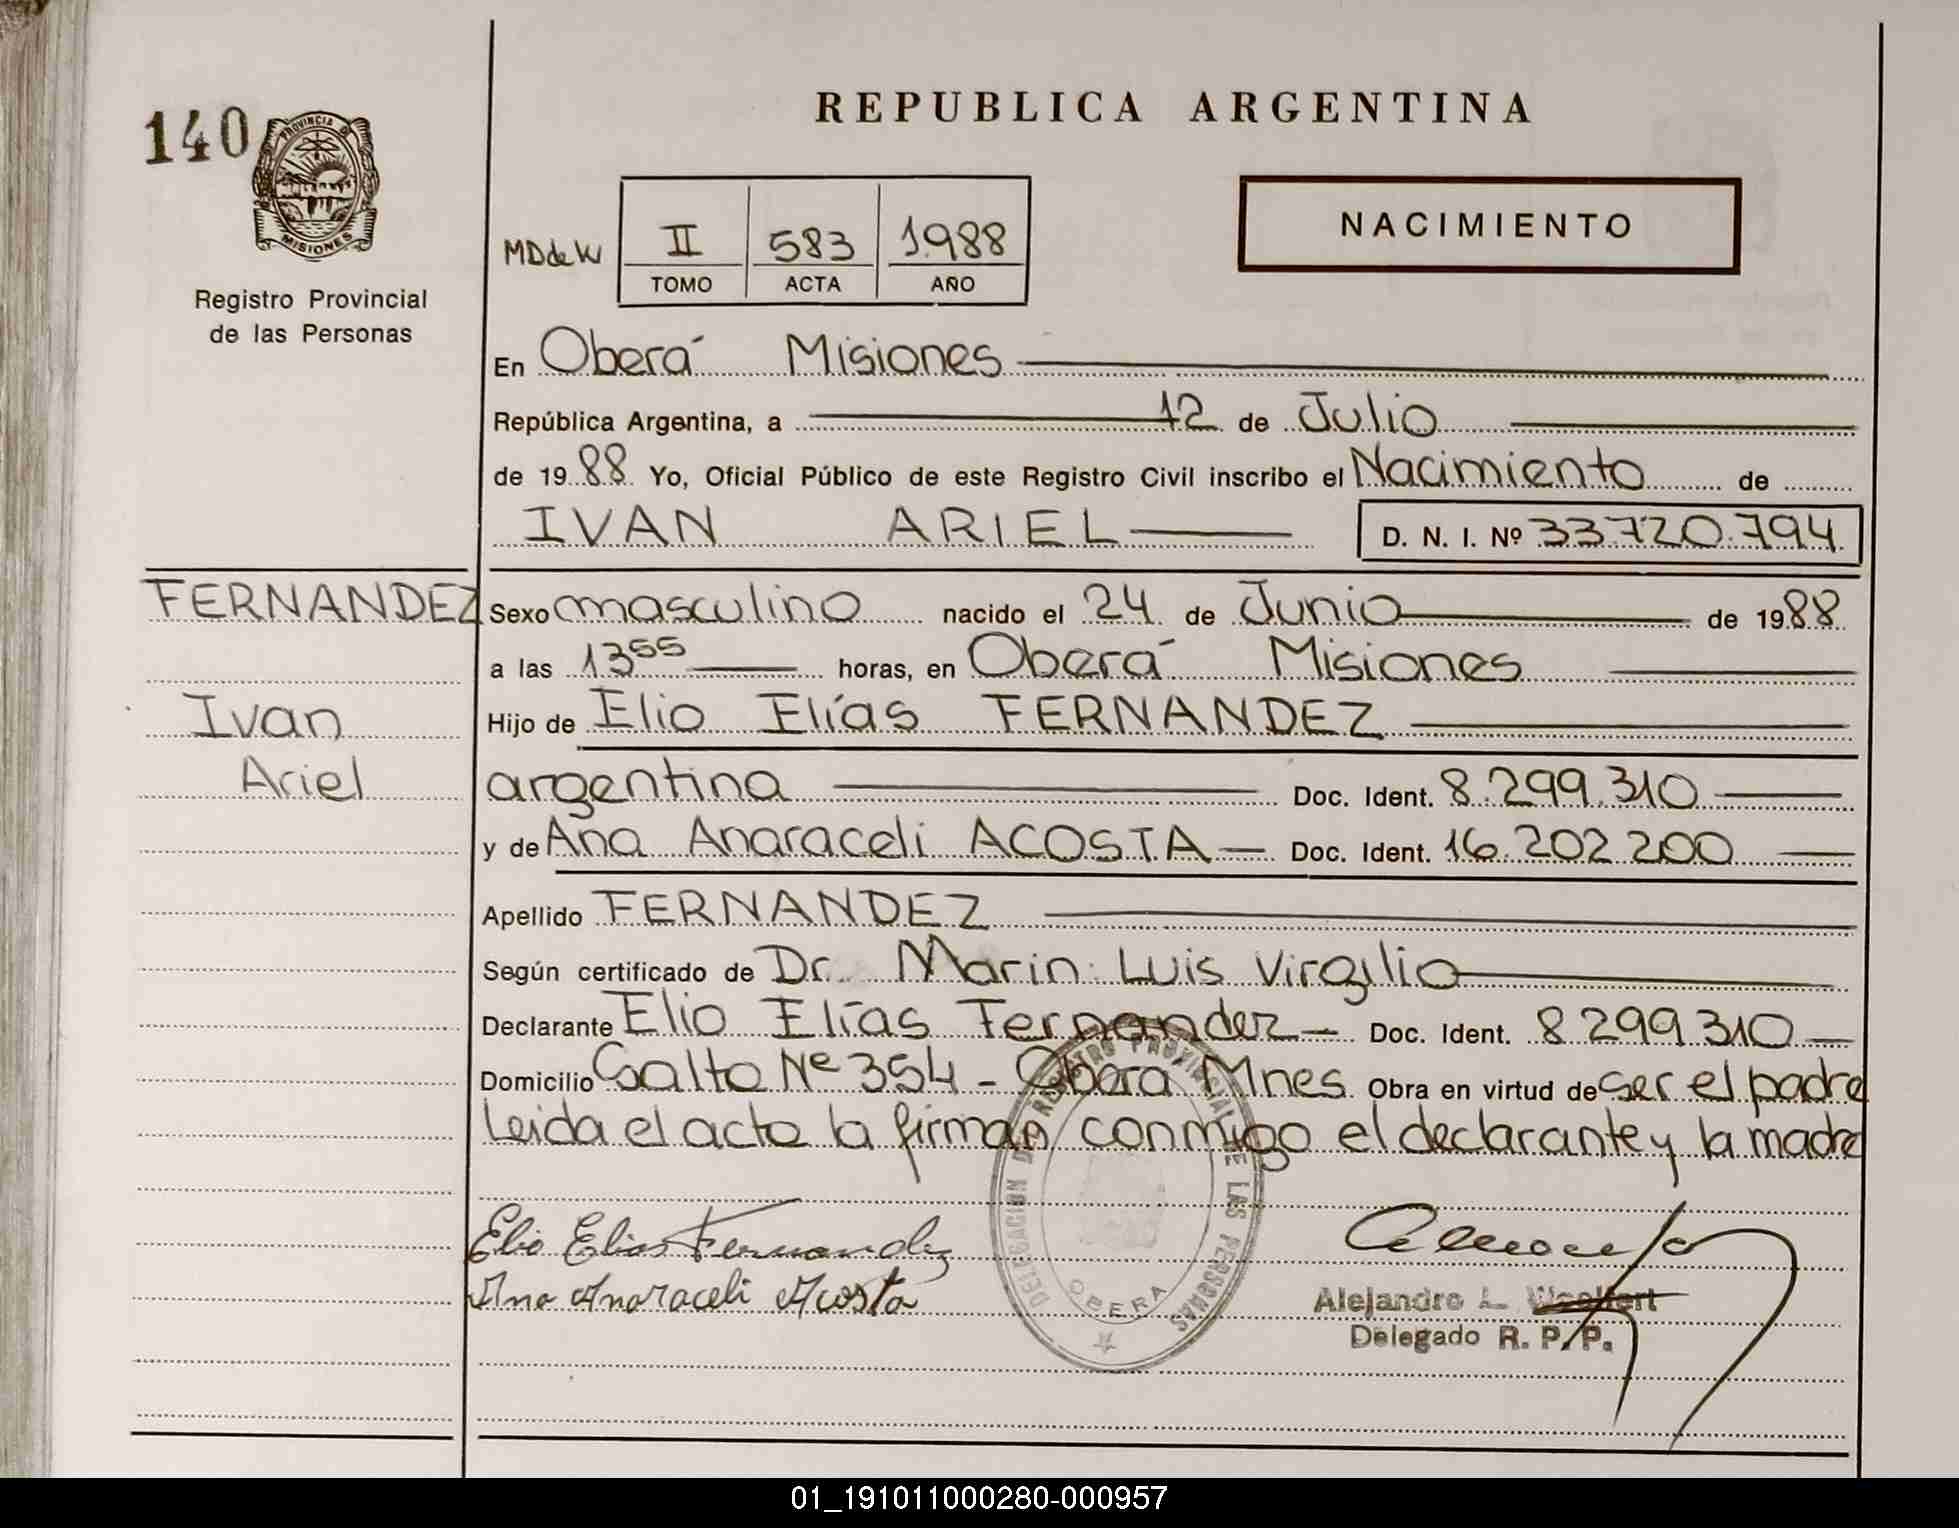 140
PROVINCIA DE
MISIONES
Registro Provincial
de las Personas
REPUBLICA ARGENTINA
NACIMIENTO
MD de W
II 583 1.988
TOMO ACTA AÑO
En Oberá Misiones
República Argentina, a 12 de Julio
de 19 88 Yo, Oficial Público de este Registro Civil inscribo el Nacimiento de
IVAN ARIEL D. N. I. Nº 33.720.794
FERNANDEZ
Ivan
Ariel
Sexo masculino nacido el 24 de Junio de 19 88
a las 13 55 horas, en Oberá Misiones
Hijo de Elio Elías FERNANDEZ
argentina Doc. Ident. 8.299.310
y de Ana Anaraceli ACOSTA Doc. Ident. 16.202.200
Apellido FERNANDEZ
Según certificado de Dr. Marin Luis Virgilio
Declarante Elio Elías Fernandez Doc. Ident. 8 299 310
Domicilio Salto Nº 354 - Obera Mnes Obra en virtud de ser el padre
Leida el acta la firman conmigo el declarante y la madre
Elio Elias Fernandez
Ana Anaraceli Acosta
DELEGACION DEL REGISTRO PROVINCIAL DE LAS PERSONAS
OBERA
Alejandro L.
Delegado R. P. P.
01_191011000280-000957